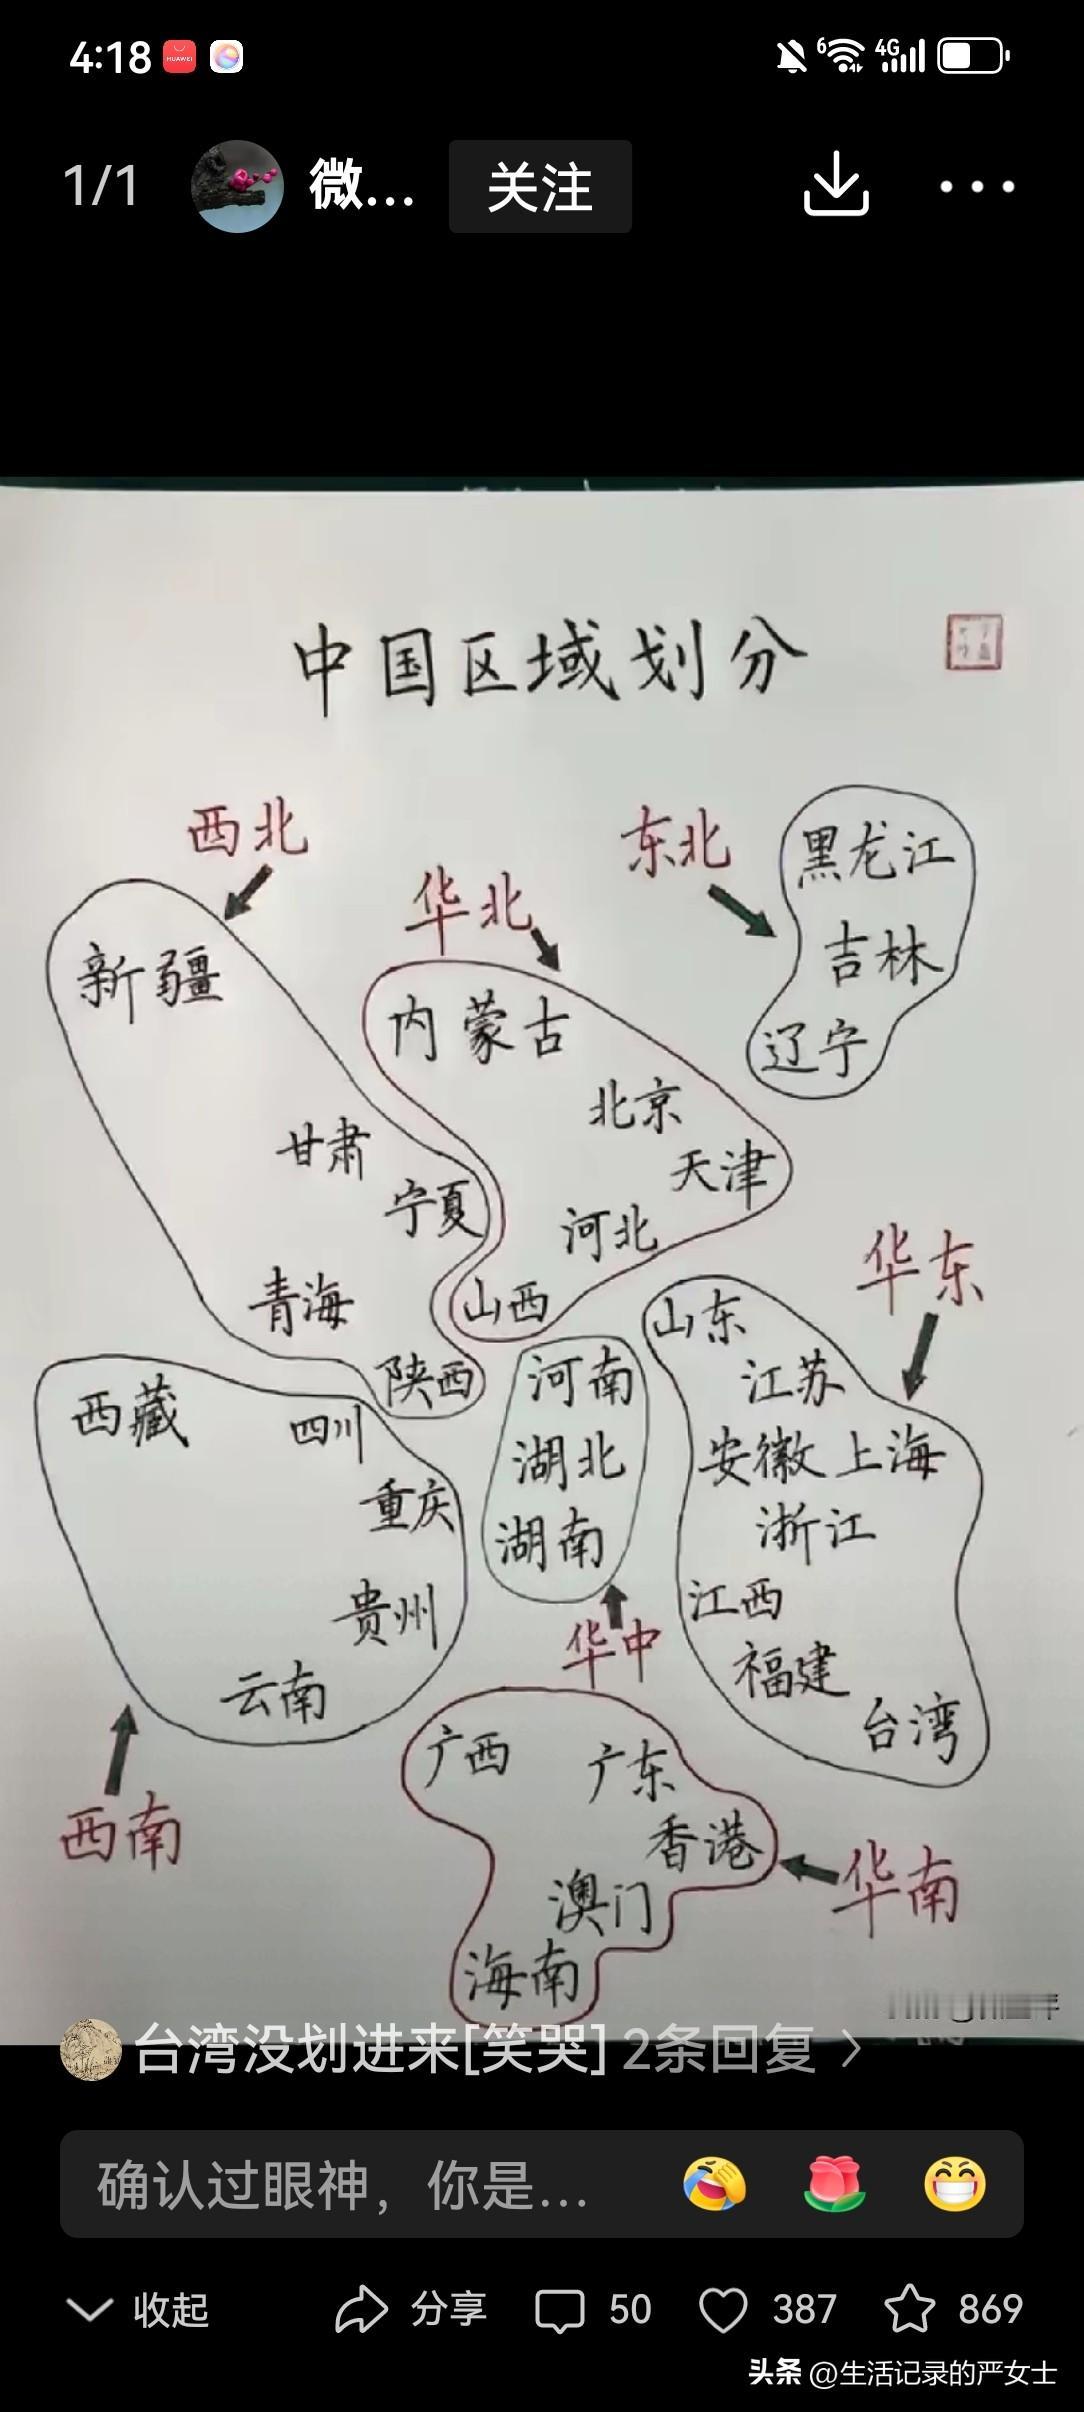 4:18
HUAWEI
6
4G
1/1
微...
关注
中国区域划分
西北
东北
黑龙江
华北
吉林
新疆
内蒙古
辽宁
北京
甘肃
天津
宁夏
河北
华东
青海
山西
山东
陕西
河南
江苏
西藏
四川
湖北
安徽 上海
重庆
湖南
浙江
贵州
江西
华中
福建
云南
台湾
广西
广东
西南
香港
华南
澳门
海南
台湾没划进来[笑哭] 2条回复
确认过眼神，你是...
收起
分享
50
387
869
头条 @生活记录的严女士